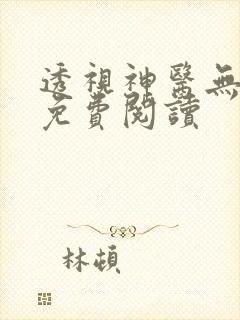 透視神醫無
免費閱讀
林頓